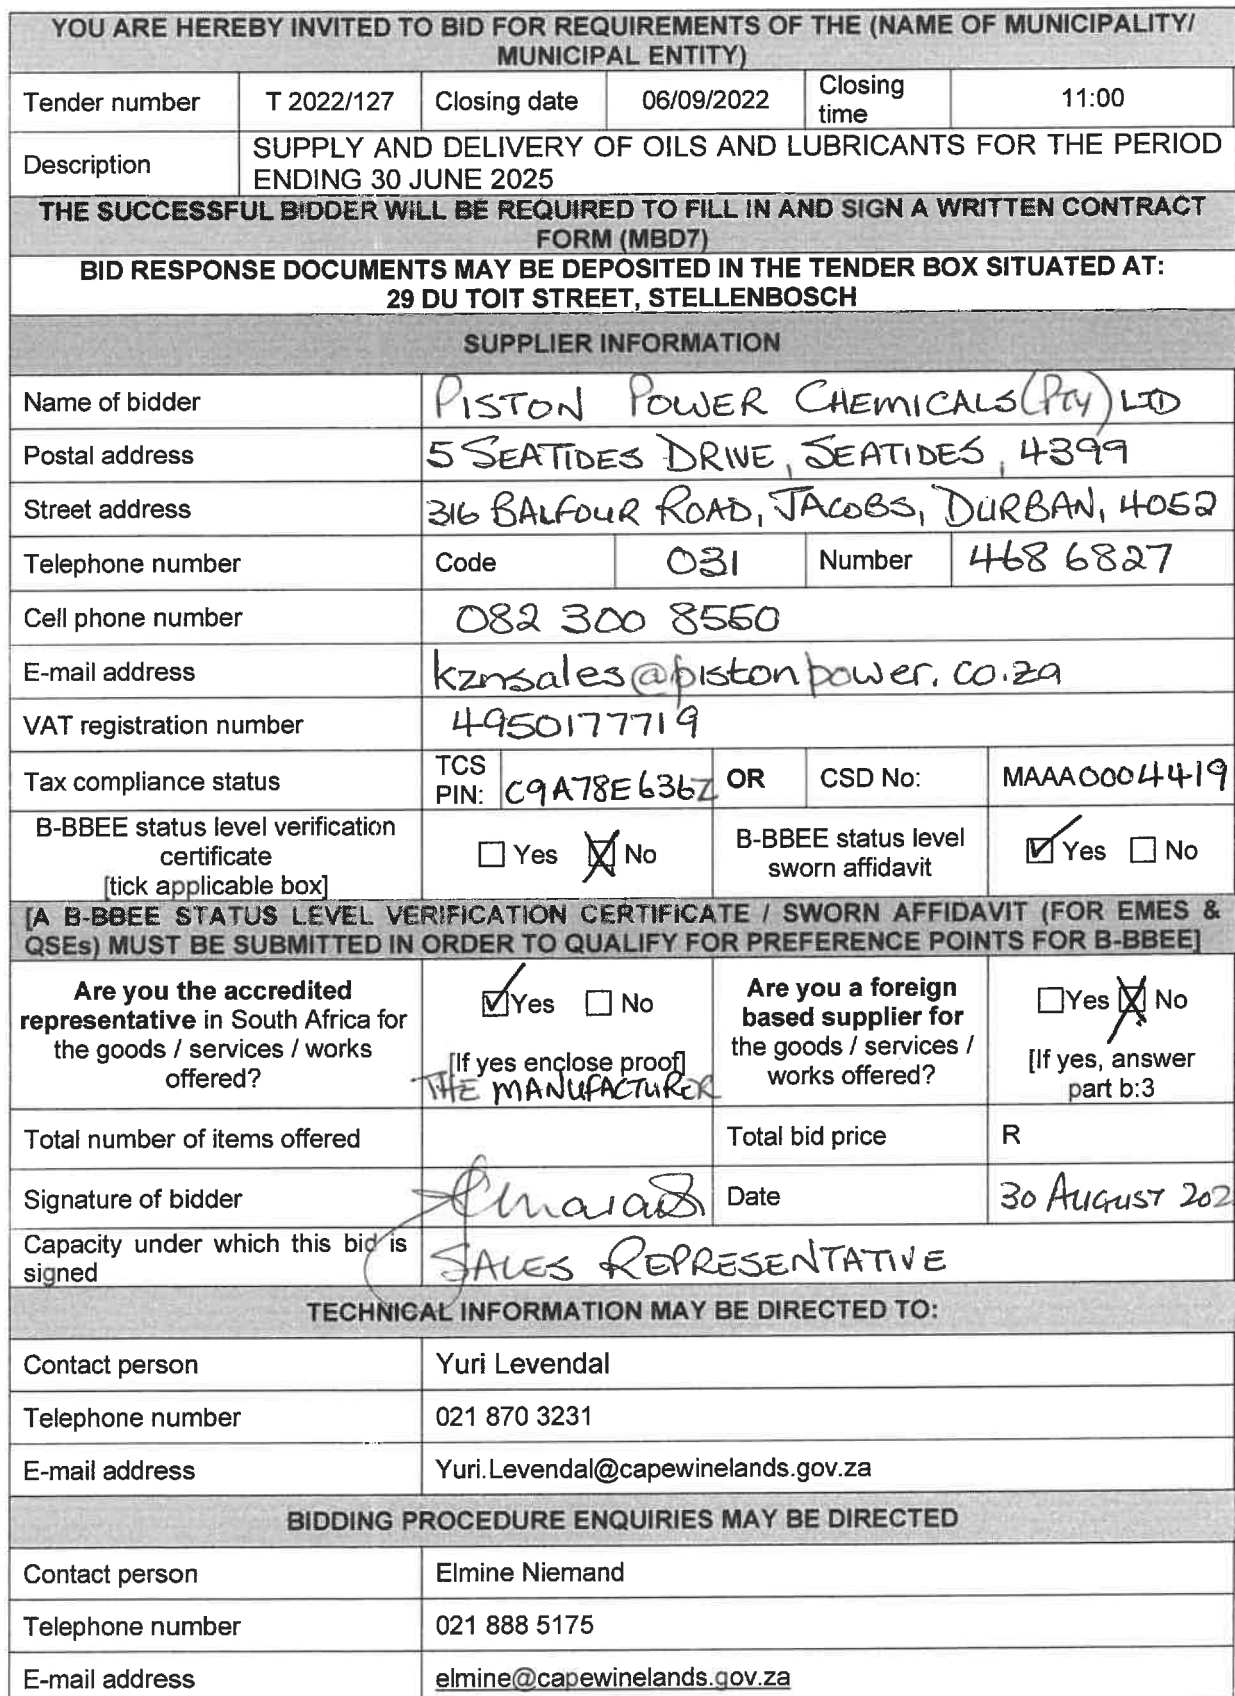 YOU ARE HEREBY INVITED TO BID FOR REQUIREMENTS OF THE (NAME OF MUNICIPALITY/
MUNICIPAL ENTITY)
Tender number T 2022/127 Closing date 06/09/2022 Closing time 11:00
Description SUPPLY AND DELIVERY OF OILS AND LUBRICANTS FOR THE PERIOD
ENDING 30 JUNE 2025
THE SUCCESSFUL BIDDER WILL BE REQUIRED TO FILL IN AND SIGN A WRITTEN CONTRACT
FORM (MBD7)
BID RESPONSE DOCUMENTS MAY BE DEPOSITED IN THE TENDER BOX SITUATED AT:
29 DU TOIT STREET, STELLENBOSCH
SUPPLIER INFORMATION
Name of bidder PISTON POWER CHEMICALS (PTY) LTD
Postal address 5 SEATIDES DRIVE, SEATIDES, 4399
Street address 316 BALFOUR ROAD, JACOBS, DURBAN, 4052
Telephone number Code 031 Number 468 6827
Cell phone number 082 300 8550
E-mail address kznsales@pistonpower.co.za
VAT registration number 4950177719
Tax compliance status TCS PIN: C9A78E636Z OR CSD No: MAAA0004419
B-BBEE status level verification
certificate
[tick applicable box]
Yes No
B-BBEE status level
sworn affidavit
Yes No
[A B-BBEE STATUS LEVEL VERIFICATION CERTIFICATE / SWORN AFFIDAVIT (FOR EMES &
QSEs) MUST BE SUBMITTED IN ORDER TO QUALIFY FOR PREFERENCE POINTS FOR B-BBEE]
Are you the accredited
representative in South Africa for
the goods / services / works
offered?
Yes No
[If yes enclose proof]
THE MANUFACTURER
Are you a foreign
based supplier for
the goods / services /
works offered?
Yes No
[If yes, answer
part b:3
Total number of items offered Total bid price R
Signature of bidder Date 30 AUGUST 202
Capacity under which this bid is
signed
SALES REPRESENTATIVE
TECHNICAL INFORMATION MAY BE DIRECTED TO:
Contact person Yuri Levendal
Telephone number 021 870 3231
E-mail address Yuri.Levendal@capewinelands.gov.za
BIDDING PROCEDURE ENQUIRIES MAY BE DIRECTED
Contact person Elmine Niemand
Telephone number 021 888 5175
E-mail address elmine@capewinelands.gov.za